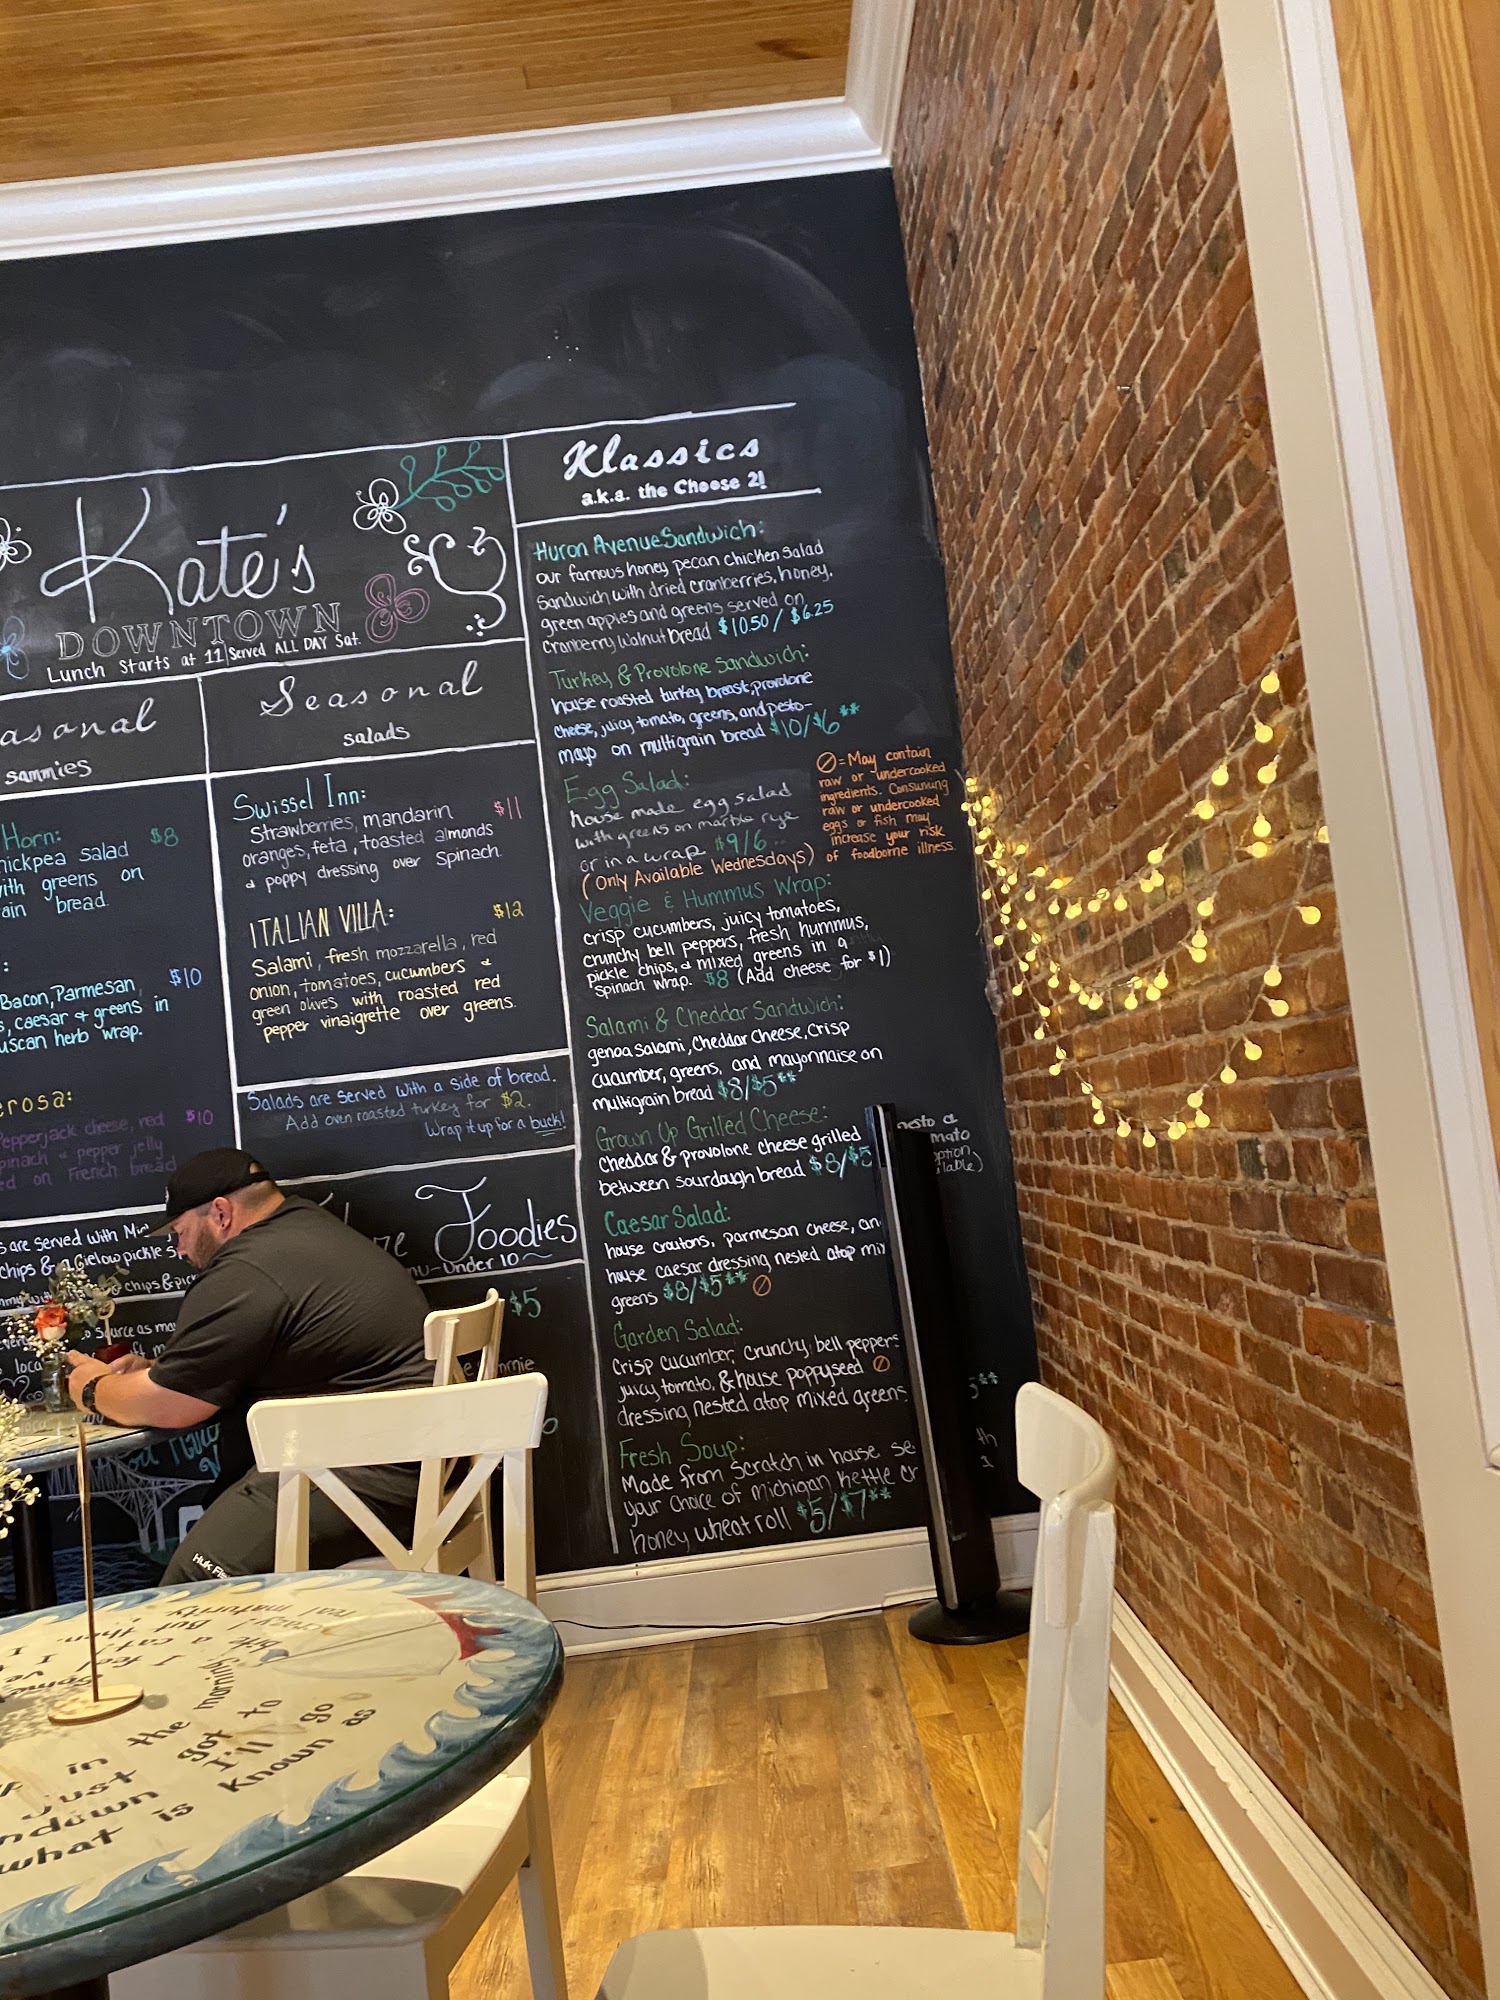 Kate's
DOWNTOWN
Lunch Starts at 11 Served ALL DAY Sat.
sammies
Horn: $8
salad
greens on
bread.
Bacon, Parmesan, $10
caesar & greens in
herb wrap.
Pepperjack cheese, red $10
& pepper jelly
on French bread
are served with
chips & a Gielow pickle
chips &
source as
Seasonal
salads
Swissel Inn:
Strawberries, mandarin $11
oranges, feta, toasted almonds
& poppy dressing over Spinach.
ITALIAN VILLA: $12
Salami, fresh mozzarella, red
onion, tomatoes, cucumbers &
green olives with roasted red
pepper vinaigrette over greens.
Salads are served with a side of bread.
Add oven roasted turkey for $2.
Wrap it up for a buck!
Foodies
Under 10
$5
Klassics
a.k.a. the Choose 2!
Huron Avenue Sandwich:
our famous honey pecan chicken salad
sandwich with dried cranberries, honey,
green apples and greens served on
cranberry walnut bread $10.50 / $6.25
Turkey & Provolone Sandwich:
house roasted turkey breast, provolone
cheese, juicy tomato, greens, and pesto-
mayo on multigrain bread $10/$6**
Egg Salad:
house made egg salad
with greens on marble rye
or in a wrap $9/6
(Only Available Wednesdays)
= May contain
raw or undercooked
ingredients. Consuming
raw or undercooked
eggs or fish may
increase your risk
of foodborne illness.
Veggie & Hummus Wrap:
crisp cucumbers, juicy tomatoes,
crunchy bell peppers, fresh hummus,
pickle chips, & mixed greens in a
spinach wrap. $8 (Add cheese for $1)
Salami & Cheddar Sandwich:
genoa salami, Cheddar Cheese, Crisp
cucumber, greens, and mayonnaise on
multigrain bread $8/$5**
Grown Up Grilled Cheese:
cheddar & provolone cheese grilled
between sourdough bread $8/$5
Caesar Salad:
house croutons, parmesan cheese,
house caesar dressing nested atop
greens $8/$5**
Garden Salad:
Crisp cucumber, crunchy, bell peppers
juicy tomato, & house poppyseed
dressing nested atop mixed greens
Fresh Soup:
Made from scratch in house.
your choice of Michigan Kettle or
honey wheat roll $5/$7**
in the morning
just got to
I'll go
what is known as
real maturity
but then
bite a cat
I feel